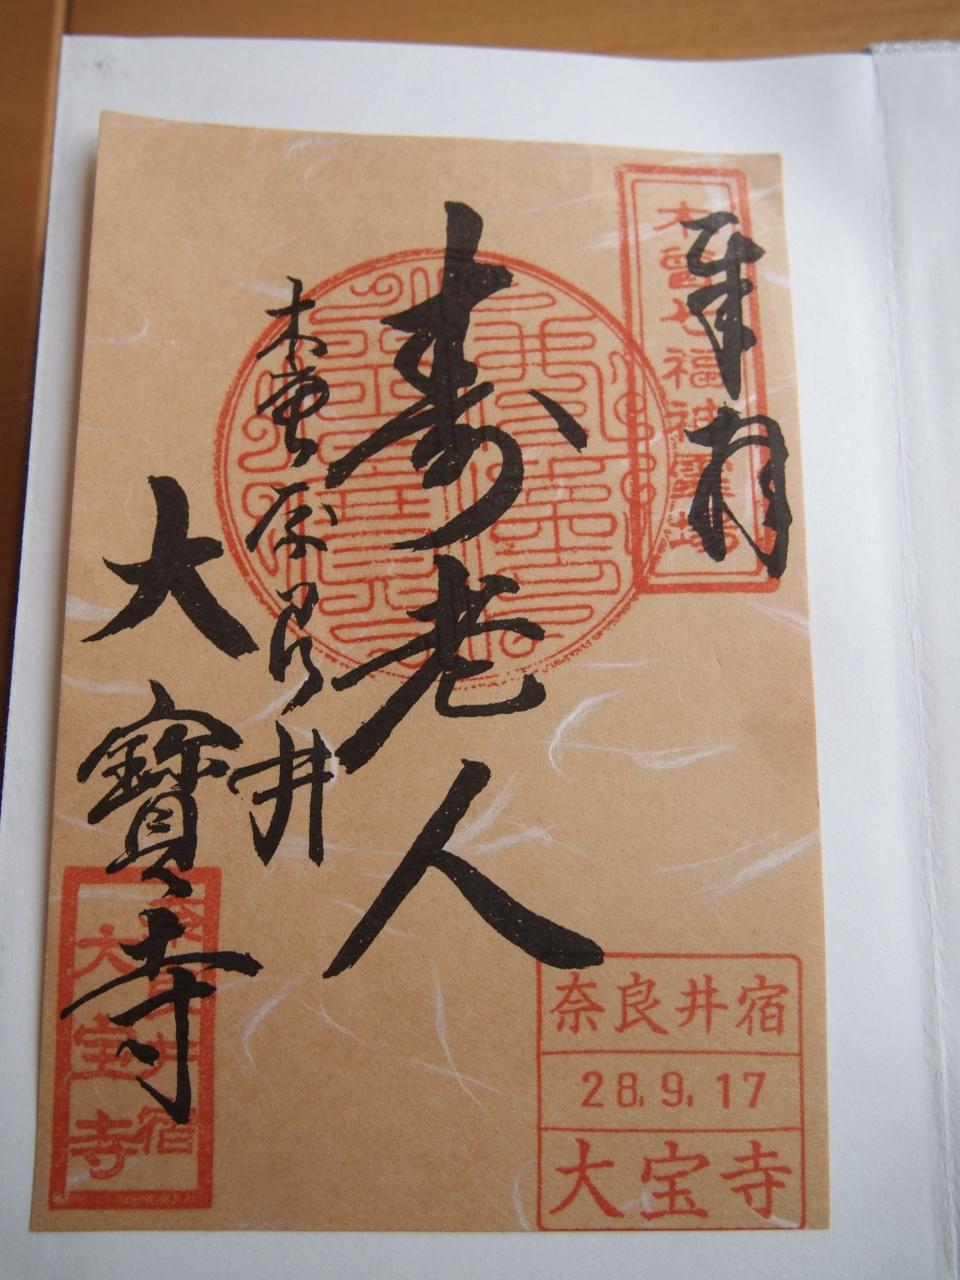 奉拝
木曽七福神霊場
寿老人
木曽奈良井
大寳寺
奈良井宿
大宝寺
奈良井宿
28.9.17
大宝寺